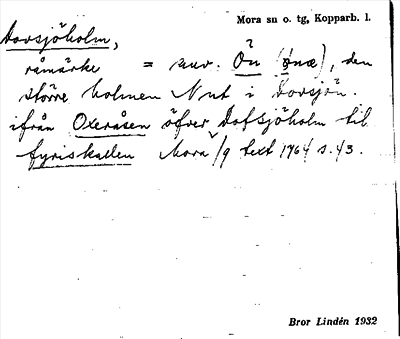 Mora sn o. tg, Kopparb. l.
Dovsjöholm,
råmärke = nuv. Ön (ønæ), den
större holmen N ut i Dovsjön.
ifrån Oxeråsen öfver Dofsjöholm til
fyriskallen Mora v/g text 1764 s. 43.
Bror Lindén 1932